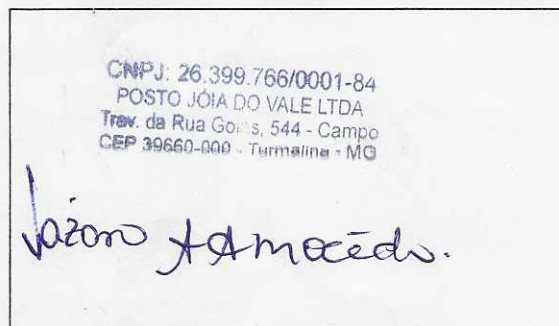 CNPJ: 26.399.766/0001-84
POSTO JÓIA DO VALE LTDA
Trav. da Rua Goiás, 544 - Campo
CEP 39660-000 - Turmalina - MG
Lázaro A A Macêdo.